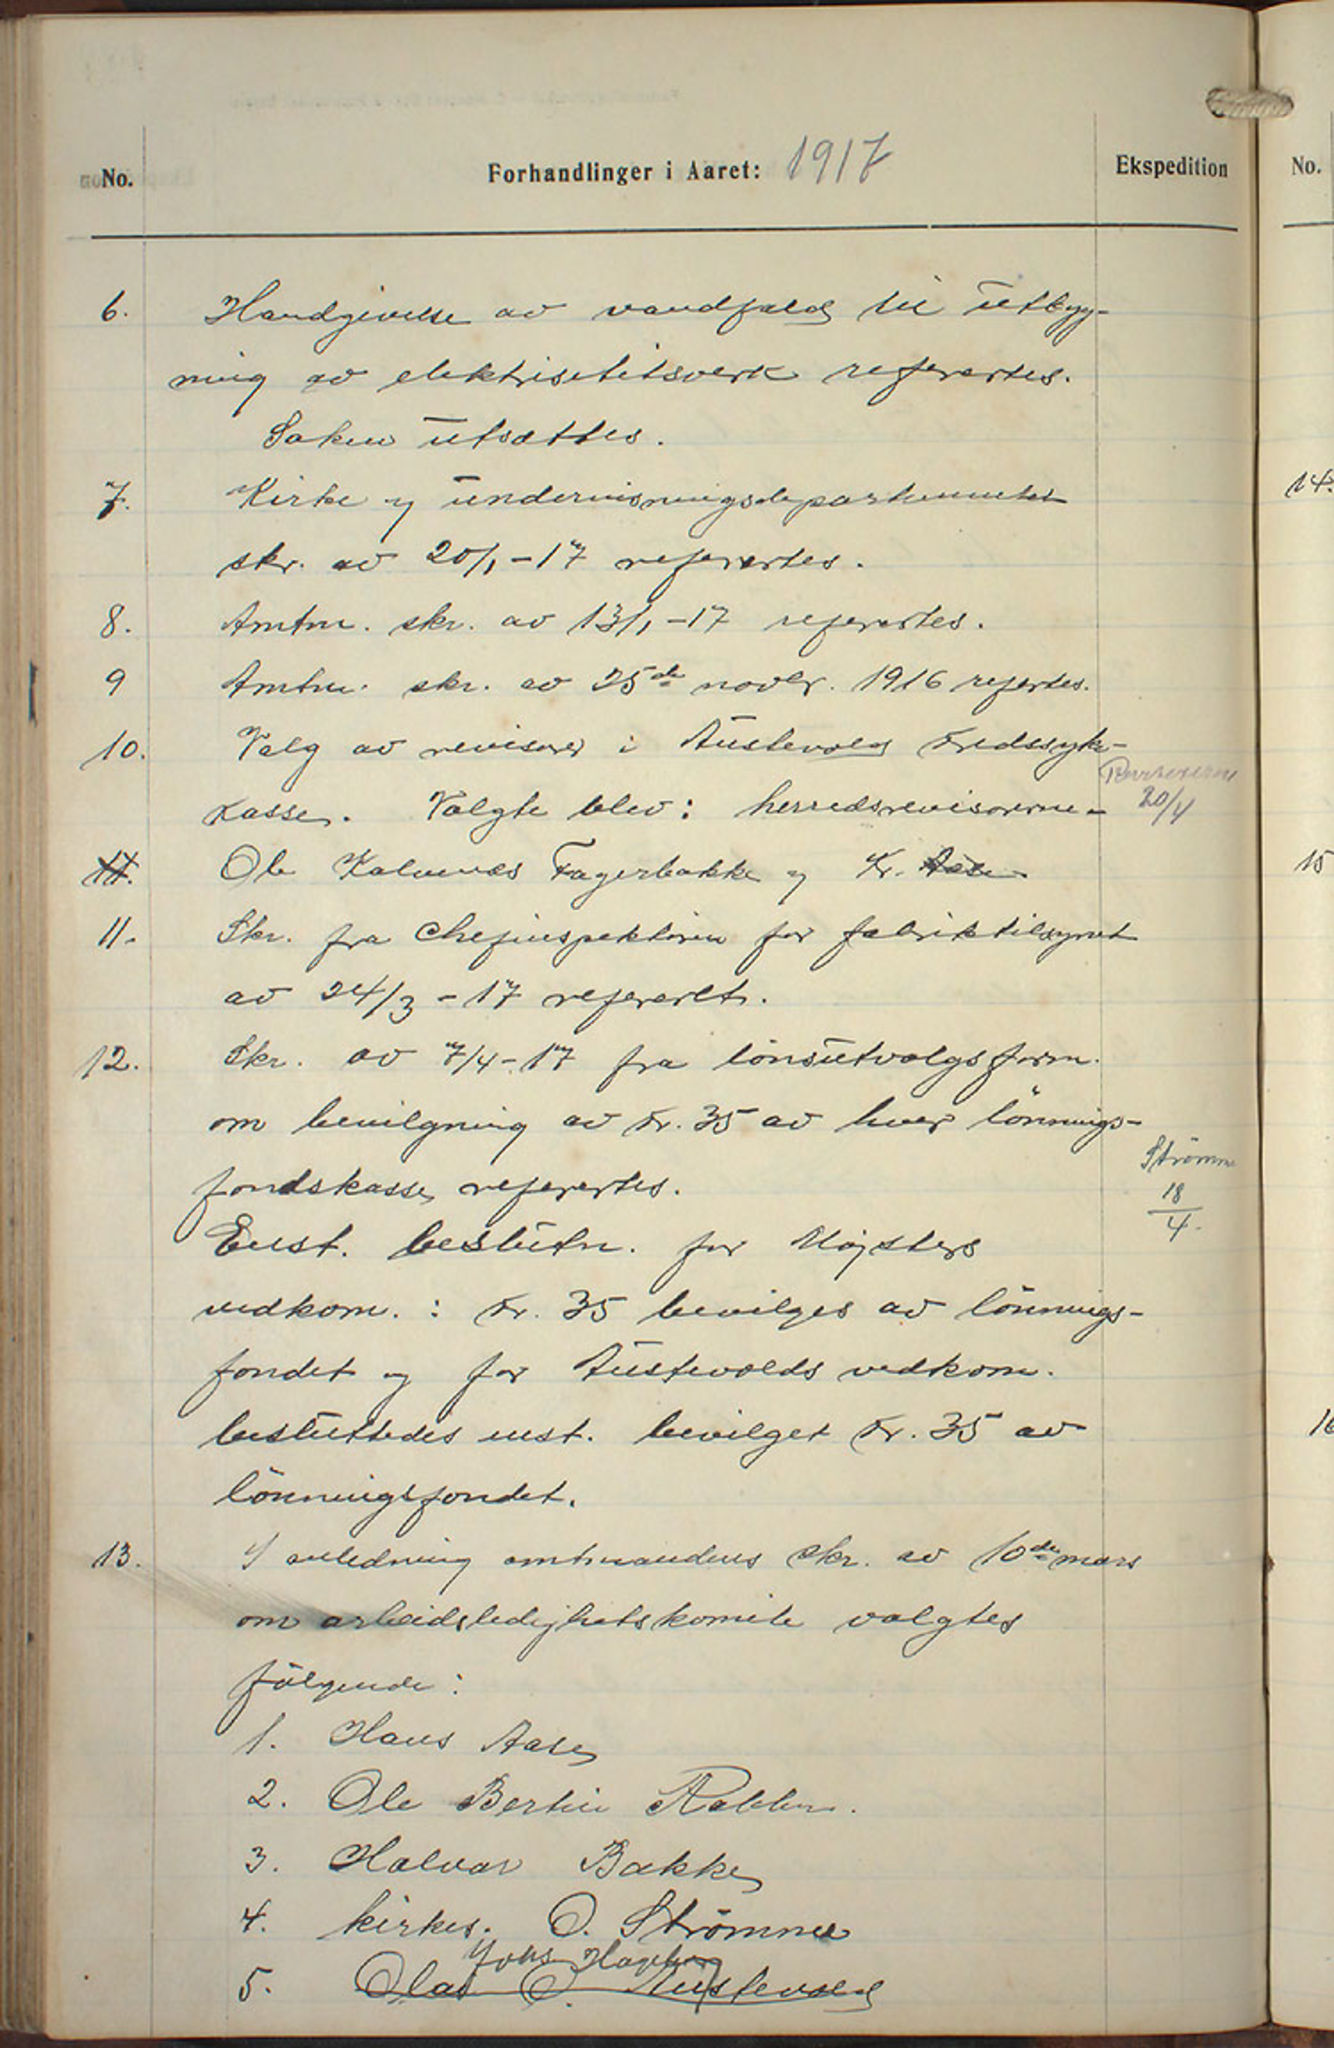 No.
Forhandlinger i Aaret: 1917
Ekspedition
No.
6. Handgivelse av vandfald til utbyg-
ning av elektrisitetsverk refertes.
Saken utsættes.
7. Kirke og undervisningsdepartementet
skr. av 20/1-17 refertes.
8. Amtm. skr. av 13/1-17 refertes.
9 Amtm. skr. av 25de novbr. 1916 refertes.
10. Valg av revisorer i Austevold kredssyke-
kasse. Valgte blev: herredsrevisorerne
Revisorerne
20/4
11. Ole Kalvenes Fagerbakke og Kr. Aase
11. Skr. fra chefinspektøren for fabriktilsynet
av 24/3-17 referert.
12. Skr. av 7/4-17 fra lønsutvalgsform.
om bevilgning av kr. 35 av hver lønnings-
fondskasse refertes.
Strømme
18
4.
Enst. beslutn. for Møgsters
vedkom.: kr. 35 bevilges av lønnings-
fondet og for Austevolds vedkom.
besluttedes enst. bevilget kr. 35 av
lønningsfondet.
13. I anledning amtmandens skr. av 10de mars
om arbeidsledighetskomite valgtes
følgende:
1. Hans Aase
2. Ole Bertin Rabben.
3. Halvar Bakke
4. kirkes. O. Strømme
Johs
5. Olav O. Austevold
14.
15
16